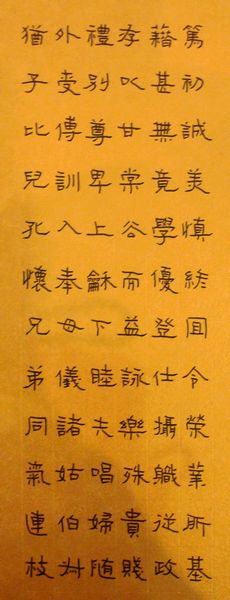 篤初誠美慎終宜令榮業所基
藉甚無竟學優登仕攝職從政
存以甘棠去而益詠樂殊貴賤
禮別尊卑上龢下睦夫唱婦随
外受傅訓入奉母儀諸姑伯叔
猶子比兒孔懷兄弟同氣連枝